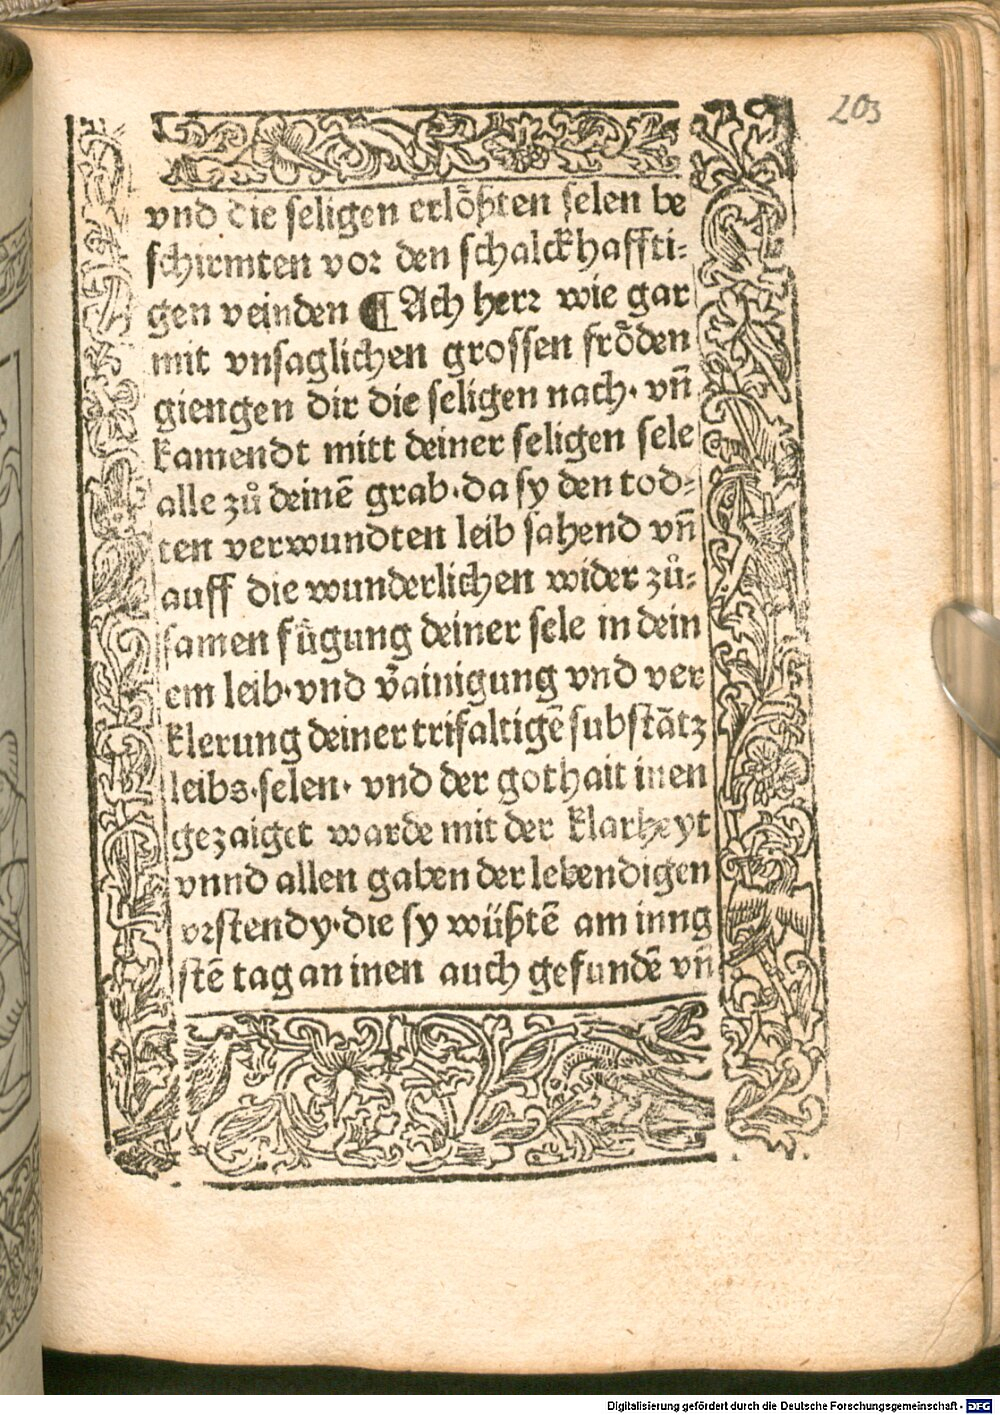 203
vnd die seligen erloͤßten selen be
schirmten vor den schalckhaffti⸗
gen veinden ¶ Ach herꝛ wie gar
mit vnsaglichen grossen froͤden
giengen dir die seligen nach· vn̄
kamendt mitt deiner seligen sele
alle zů deinē grab·da sy den tod⸗
ten verwundten leib sahend vn̄
auff die wunderlichen wider zů⸗
samen fügung deiner sele in dein
em leib·vnd v̄ainigung vnd ver
klerung deiner trifaltigē substātz
leibs·selen· vnd der gothait inen
gezaiget warde mit der klarheyt
vnnd allen gaben der lebendigen
vꝛstendy·die sy wüßtē am inng
stē tag an inen auch gefundē vn̄
Digitalisierung gefördert durch die Deutsche Forschungsgemeinschaft - DFG